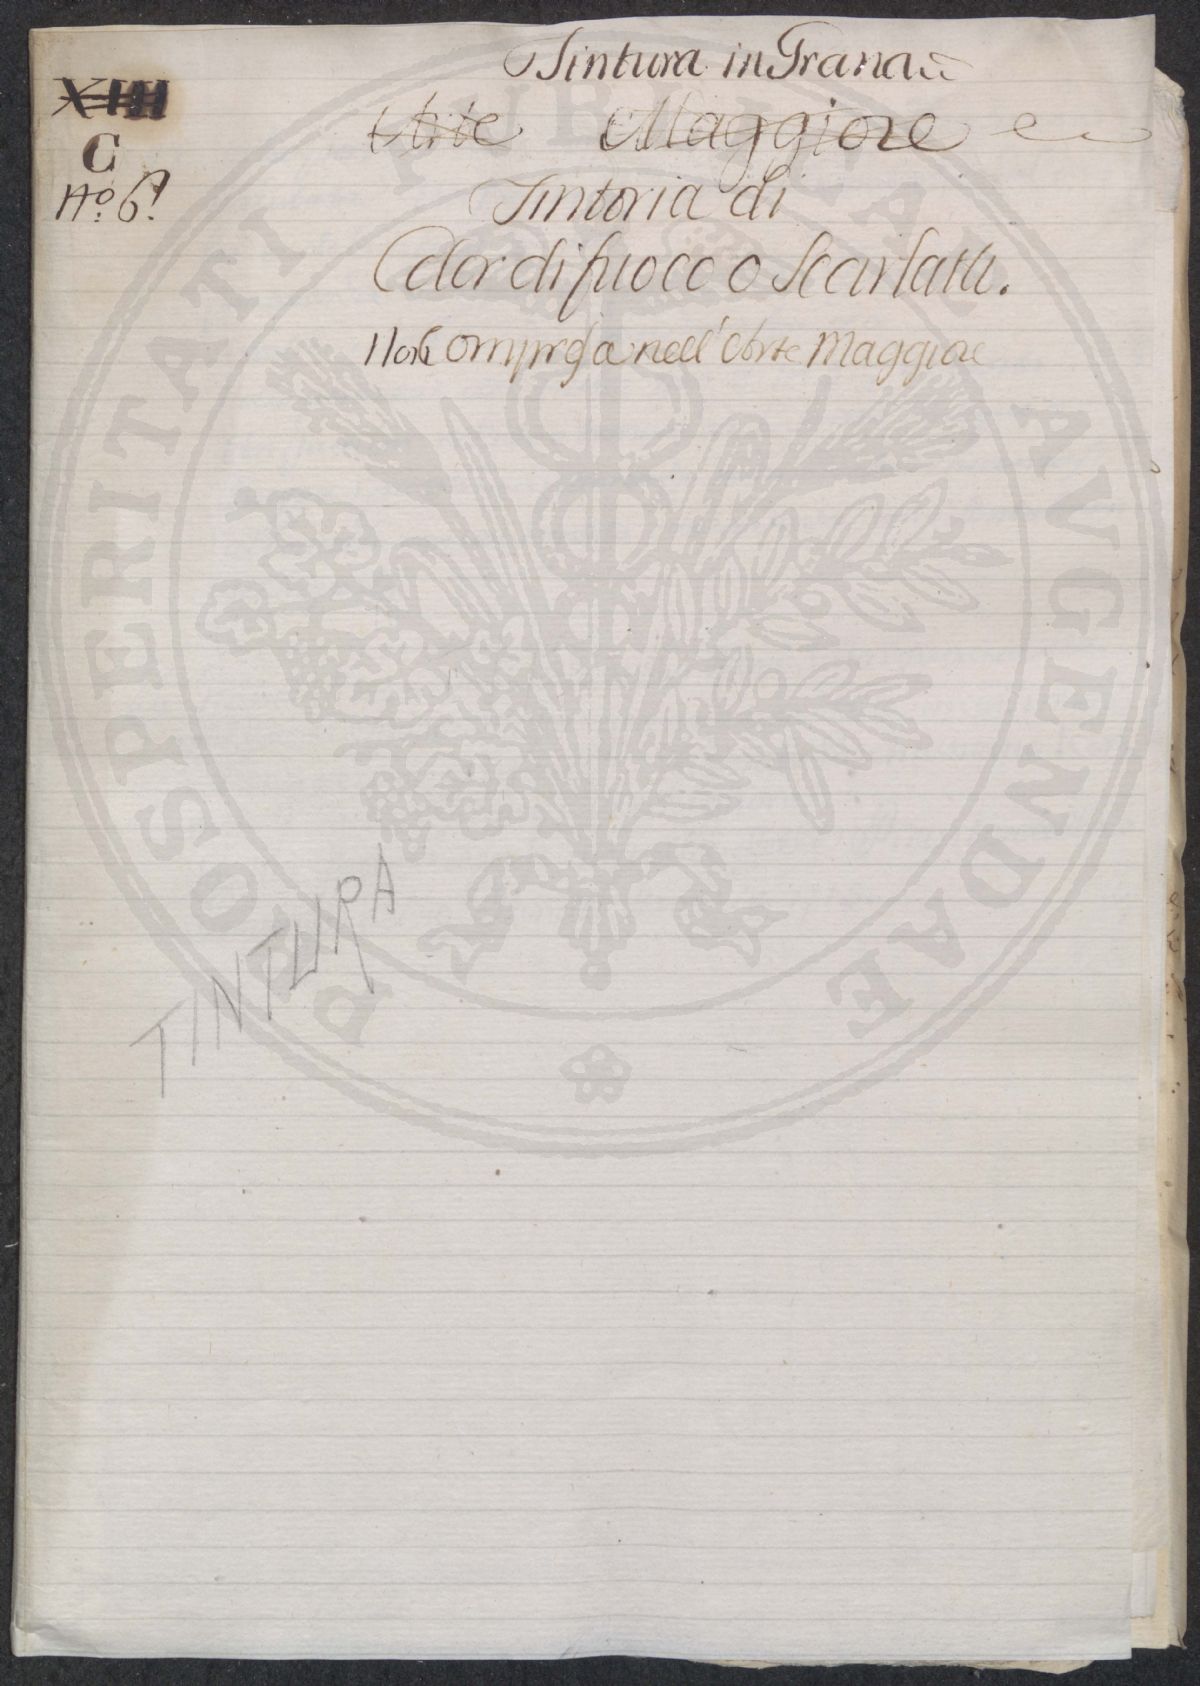 XIII
C
No: 6:
Tintura in Grana
Arte Maggiore e
Tintoria di
Color di fuoco o Scarlatti.
compresa nell'Arte Maggiore
TINTURA
PROSPERITATI PUBLICAE AVGENDAE